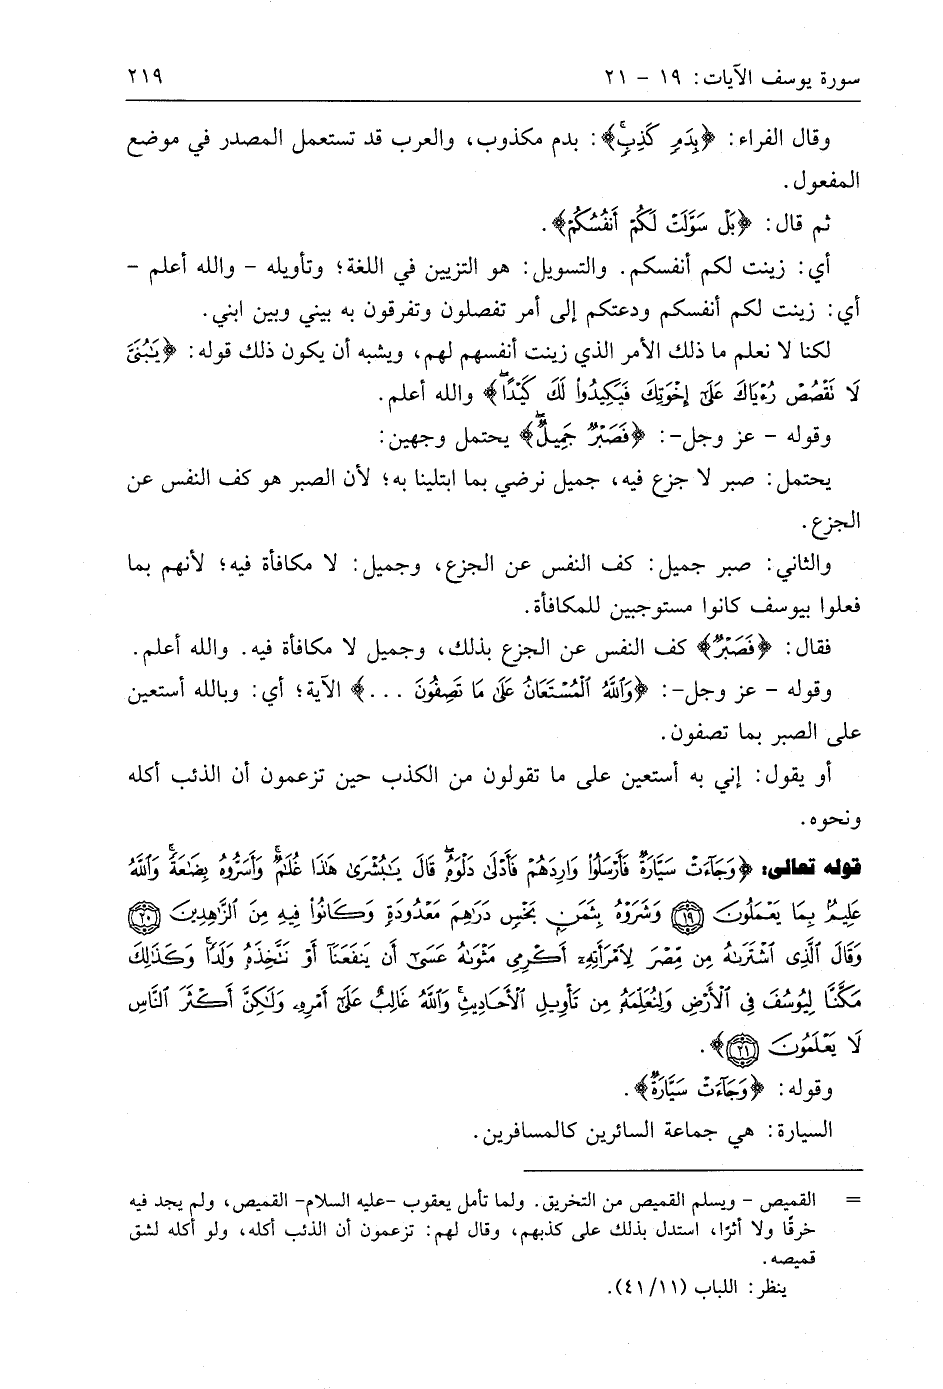 سورة يوسف الآيات: ١٩ - ٢١ ٢١٩
وقال الفراء: ﴿بِدَمٖ كَذِبٖۚ﴾: بدم مكذوب، والعرب قد تستعمل المصدر في موضع
المفعول.
ثم قال: ﴿بَلۡ سَوَّلَتۡ لَكُمۡ أَنفُسُكُمۡ﴾.
أي: زينت لكم أنفسكم. والتسويل: هو التزيين في اللغة؛ وتأويله - والله أعلم -
أي: زينت لكم أنفسكم ودعتكم إلى أمر تفصلون وتفرقون به بيني وبين ابني.
لكنا لا نعلم ما ذلك الأمر الذي زينت أنفسهم لهم، ويشبه أن يكون ذلك قوله: ﴿يَٰبُنَيَّ
لَا تَقۡصُصۡ رُءۡيَاكَ عَلَىٰٓ إِخۡوَتِكَ فَيَكِيدُواْ لَكَ كَيۡدًاۖ﴾ والله أعلم.
وقوله - عز وجل-: ﴿فَصَبۡرٞ جَمِيلٞۖ﴾ يحتمل وجهين:
يحتمل: صبر لا جزع فيه، جميل نرضي بما ابتلينا به؛ لأن الصبر هو كف النفس عن
الجزع.
والثاني: صبر جميل: كف النفس عن الجزع، وجميل: لا مكافأة فيه؛ لأنهم بما
فعلوا بيوسف كانوا مستوجبين للمكافأة.
فقال: ﴿فَصَبۡرٞ﴾ كف النفس عن الجزع بذلك، وجميل لا مكافأة فيه. والله أعلم.
وقوله - عز وجل-: ﴿وَٱللَّهُ ٱلۡمُسۡتَعَانُ عَلَىٰ مَا تَصِفُونَ ...﴾ الآية؛ أي: وبالله أستعين
على الصبر بما تصفون.
أو يقول: إني به أستعين على ما تقولون من الكذب حين تزعمون أن الذئب أكله
ونحوه.
قوله تعالى: ﴿وَجَآءَتۡ سَيَّارَةٞ فَأَرۡسَلُواْ وَارِدَهُمۡ فَأَدۡلَىٰ دَلۡوَهُۥۖ قَالَ يَٰبُشۡرَىٰ هَٰذَا غُلَٰمٞۚ وَأَسَرُّوهُ بِضَٰعَةٗۚ وَٱللَّهُ
عَلِيمُۢ بِمَا يَعۡمَلُونَ ١٩ وَشَرَوۡهُ بِثَمَنِۭ بَخۡسٖ دَرَٰهِمَ مَعۡدُودَةٖ وَكَانُواْ فِيهِ مِنَ ٱلزَّٰهِدِينَ ٢٠
وَقَالَ ٱلَّذِي ٱشۡتَرَىٰهُ مِن مِّصۡرَ لِٱمۡرَأَتِهِۦٓ أَكۡرِمِي مَثۡوَىٰهُ عَسَىٰٓ أَن يَنفَعَنَآ أَوۡ نَتَّخِذَهُۥ وَلَدٗاۚ وَكَذَٰلِكَ
مَكَّنَّا لِيُوسُفَ فِي ٱلۡأَرۡضِ وَلِنُعَلِّمَهُۥ مِن تَأۡوِيلِ ٱلۡأَحَادِيثِۚ وَٱللَّهُ غَالِبٌ عَلَىٰٓ أَمۡرِهِۦ وَلَٰكِنَّ أَكۡثَرَ ٱلنَّاسِ
لَا يَعۡلَمُونَ ٢١﴾.
وقوله: ﴿وَجَآءَتۡ سَيَّارَةٞ﴾.
السيارة: هي جماعة السائرين كالمسافرين.
= القميص - ويسلم القميص من التخريق. ولما تأمل يعقوب -عليه السلام- القميص، ولم يجد فيه
خرقًا ولا أثرًا، استدل بذلك على كذبهم، وقال لهم: تزعمون أن الذئب أكله، ولو أكله لشق
قميصه.
ينظر: اللباب (٤١/١١).